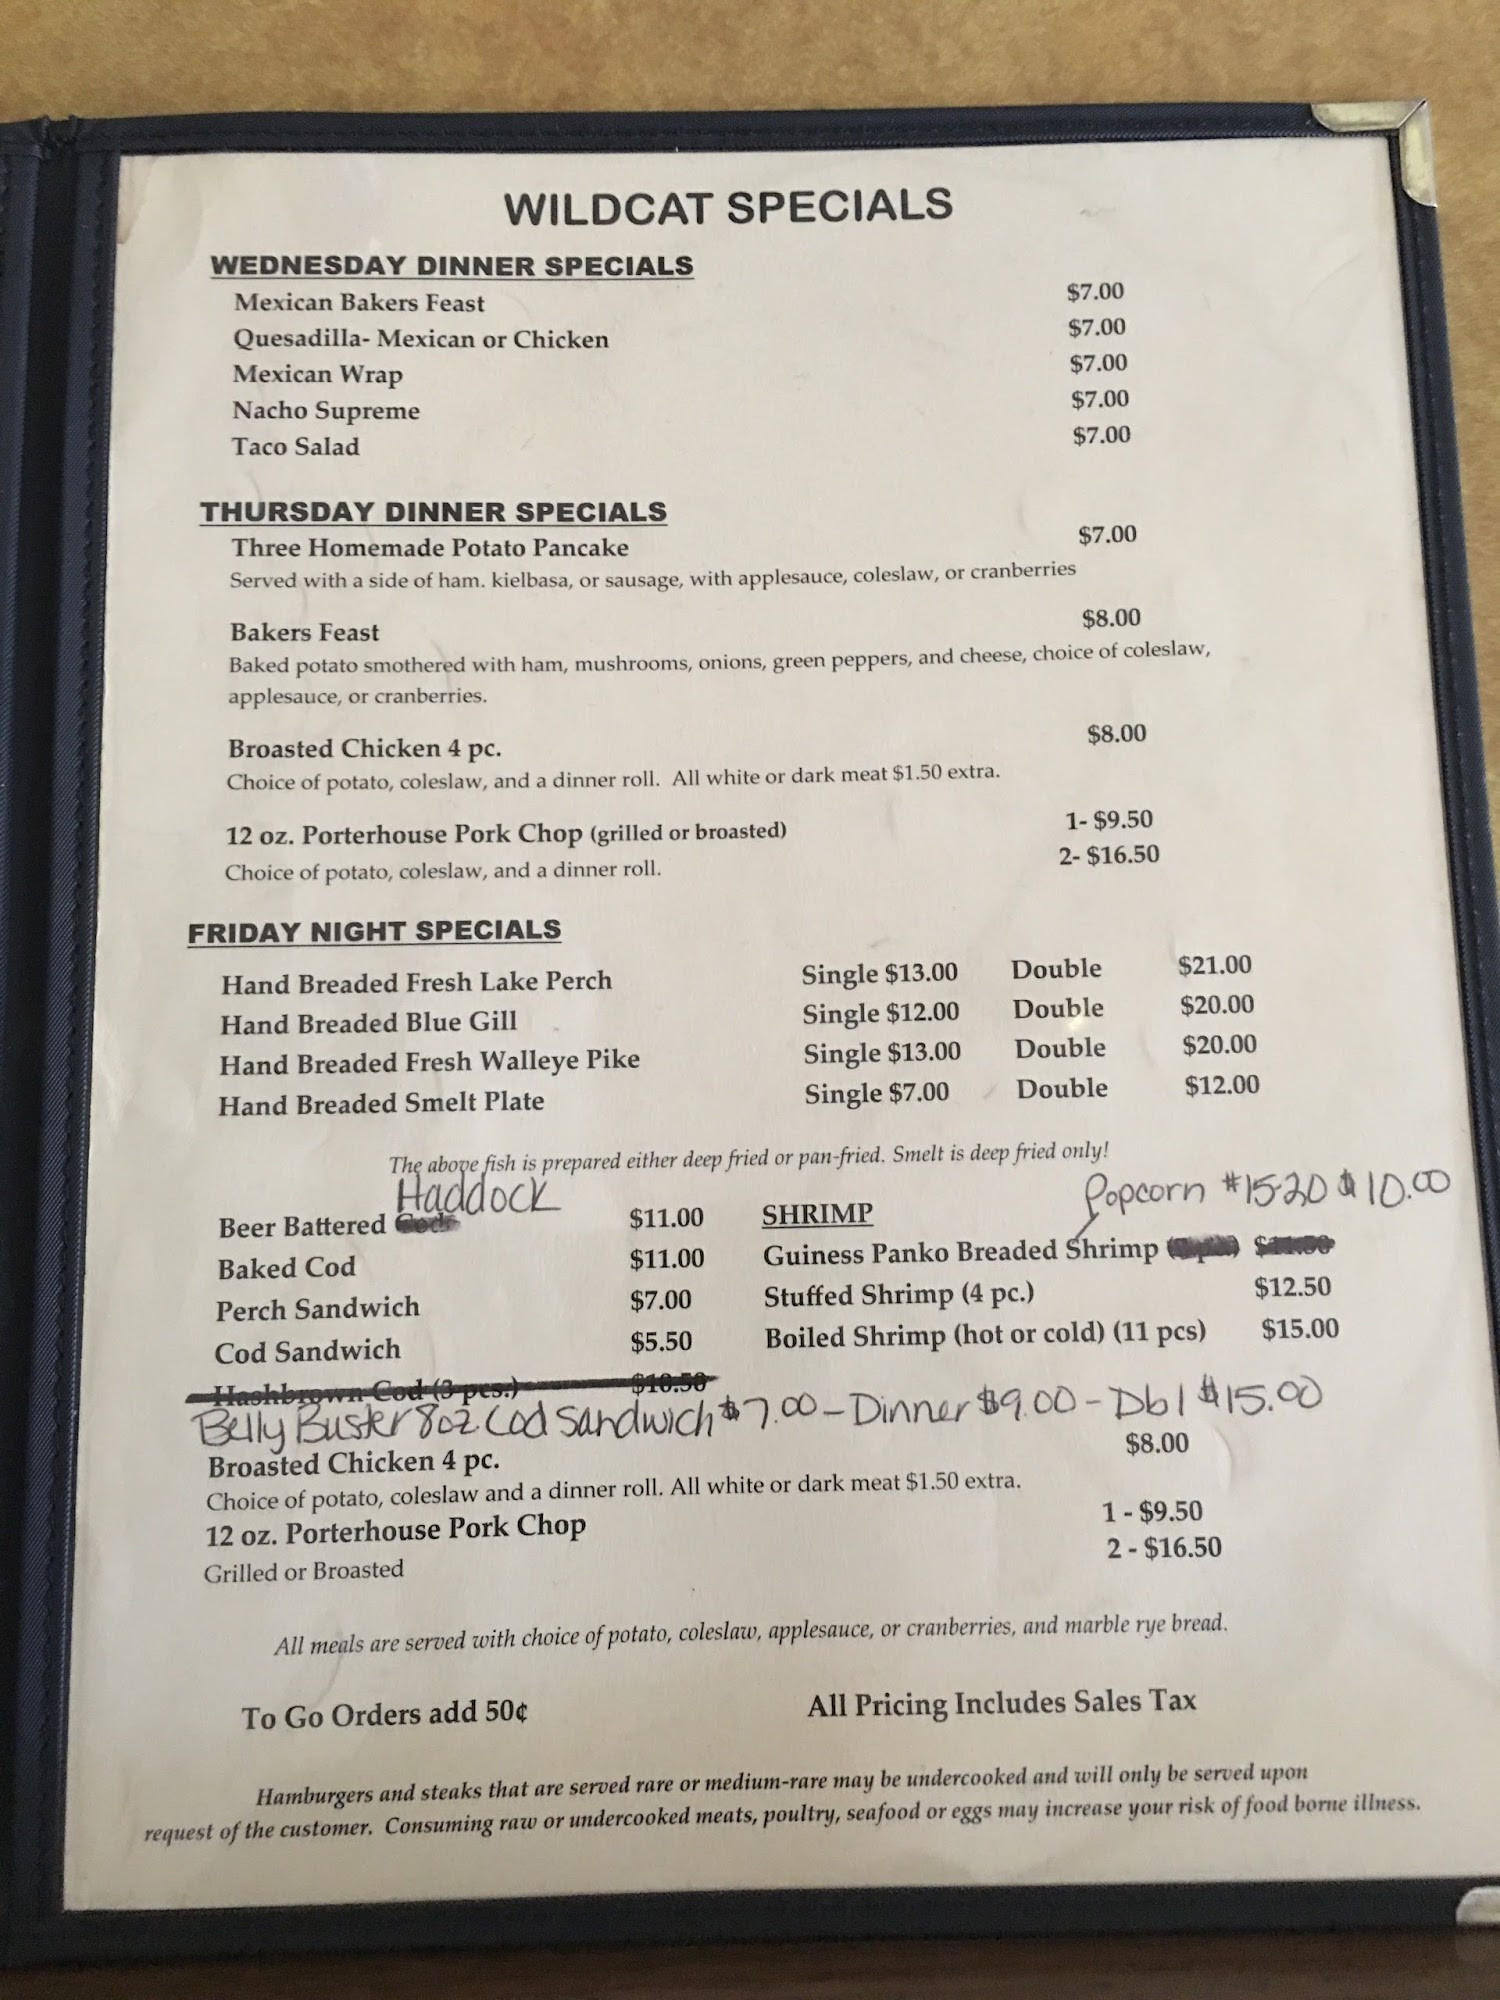 WILDCAT SPECIALS
WEDNESDAY DINNER SPECIALS
Mexican Bakers Feast $7.00
Quesadilla- Mexican or Chicken $7.00
Mexican Wrap $7.00
Nacho Supreme $7.00
Taco Salad $7.00
THURSDAY DINNER SPECIALS
Three Homemade Potato Pancake $7.00
Served with a side of ham. kielbasa, or sausage, with applesauce, coleslaw, or cranberries
Bakers Feast $8.00
Baked potato smothered with ham, mushrooms, onions, green peppers, and cheese, choice of coleslaw,
applesauce, or cranberries.
Broasted Chicken 4 pc. $8.00
Choice of potato, coleslaw, and a dinner roll. All white or dark meat $1.50 extra.
12 oz. Porterhouse Pork Chop (grilled or broasted) 1- $9.50
2- $16.50
Choice of potato, coleslaw, and a dinner roll.
FRIDAY NIGHT SPECIALS
Hand Breaded Fresh Lake Perch Single $13.00 Double $21.00
Hand Breaded Blue Gill Single $12.00 Double $20.00
Hand Breaded Fresh Walleye Pike Single $13.00 Double $20.00
Hand Breaded Smelt Plate Single $7.00 Double $12.00
The above fish is prepared either deep fried or pan-fried. Smelt is deep fried only!
Haddock
Popcorn #15-20 $10.00
Beer Battered Cod $11.00 SHRIMP
Baked Cod $11.00 Guiness Panko Breaded Shrimp
Perch Sandwich $7.00 Stuffed Shrimp (4 pc.) $12.50
Cod Sandwich $5.50 Boiled Shrimp (hot or cold) (11 pcs) $15.00
Hashbrown Cod (3 pcs.) $10.50
Belly Buster 8oz Cod Sandwich $7.00 - Dinner $9.00 - Dbl $15.00
Broasted Chicken 4 pc. $8.00
Choice of potato, coleslaw and a dinner roll. All white or dark meat $1.50 extra.
12 oz. Porterhouse Pork Chop 1 - $9.50
2 - $16.50
Grilled or Broasted
All meals are served with choice of potato, coleslaw, applesauce, or cranberries, and marble rye bread.
To Go Orders add 50¢ All Pricing Includes Sales Tax
Hamburgers and steaks that are served rare or medium-rare may be undercooked and will only be served upon
request of the customer. Consuming raw or undercooked meats, poultry, seafood or eggs may increase your risk of food borne illness.